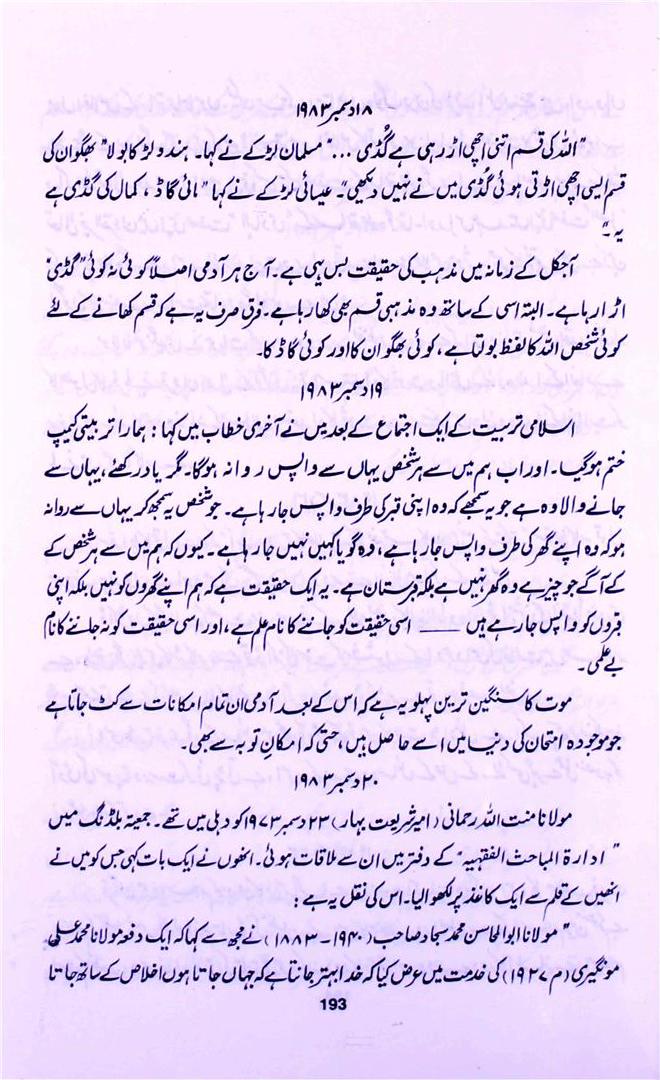 ۱۸ دسمبر ۱۹۸۳
"اللہ کی قسم اتنی اچھی اڑ رہی ہے گُڈی ... " مسلمان لڑکے نے کہا۔ ہندو لڑکا بولا "بھگوان کی
قسم ایسی اچھی اڑتی ہوئی گُڈی میں نے نہیں دیکھی"۔ عیسائی لڑکے نے کہا "مائی گاڈ، کمال کی گڈی ہے
یہ۔"
آجکل کے زمانہ میں مذہب کی حقیقت بس یہی ہے۔ آج ہر آدمی اصلاً کوئی نہ کوئی "گڈی"
اڑا رہا ہے۔ البتہ اسی کے ساتھ وہ مذہبی قسم بھی کھا رہا ہے۔ فرق صرف یہ ہے کہ قسم کھانے کے لئے
کوئی شخص اللہ کا لفظ بولتا ہے، کوئی بھگوان کا اور کوئی گاڈ کا۔
۱۹ دسمبر ۱۹۸۳
اسلامی تربیت کے ایک اجتماع کے بعد میں نے آخری خطاب میں کہا : ہمارا تربیتی کیمپ
ختم ہوگیا۔ اور اب ہم میں سے ہر شخص یہاں سے واپس روانہ ہوگا۔ مگر یاد رکھئے، یہاں سے
جانے والا وہ ہے جو یہ سمجھے کہ وہ اپنی قبر کی طرف واپس جا رہا ہے۔ جو شخص یہ سمجھ کر یہاں سے روانہ
ہو کہ وہ اپنے گھر کی طرف واپس جا رہا ہے، وہ گویا کہیں نہیں جا رہا ہے۔ کیوں کہ ہم میں سے ہر شخص کے
کے آگے جو چیز ہے وہ گھر نہیں ہے بلکہ قبرستان ہے۔ یہ ایک حقیقت ہے کہ ہم اپنے گھروں کو نہیں بلکہ اپنی
قبروں کو واپس جا رہے ہیں ــــــ اسی حقیقت کو جاننے کا نام علم ہے، اور اسی حقیقت کو نہ جاننے کا نام
بے علمی۔
موت کا سنگین ترین پہلو یہ ہے کہ اس کے بعد آدمی ان تمام امکانات سے کٹ جاتا ہے
جو موجودہ امتحان کی دنیا میں اسے حاصل ہیں، حتی کہ امکانِ توبہ سے بھی۔
۲۰ دسمبر ۱۹۸۳
مولانا منت اللہ رحمانی (امیر شریعت بہار) ۲۳ دسمبر ۱۹۷۳ کو دہلی میں تھے۔ جمعیۃ بلڈنگ میں
"ادارۃ المباحث الفقہیہ" کے دفتر میں ان سے ملاقات ہوئی۔ انھوں نے ایک بات کہی جس کو میں نے
انھیں کے قلم سے ایک کاغذ پر لکھوالیا۔ اس کی نقل یہ ہے :
"مولانا ابو المحاسن محمد سجاد صاحب (۱۹۴۰ - ۱۸۸۳) نے مجھ سے کہا کہ ایک دفعہ مولانا محمد علی
مونگیری (م ۱۹۲۷) کی خدمت میں عرض کیا کہ خدا بہتر جانتا ہے کہ جہاں جاتا ہوں اخلاص کے ساتھ جاتا
193